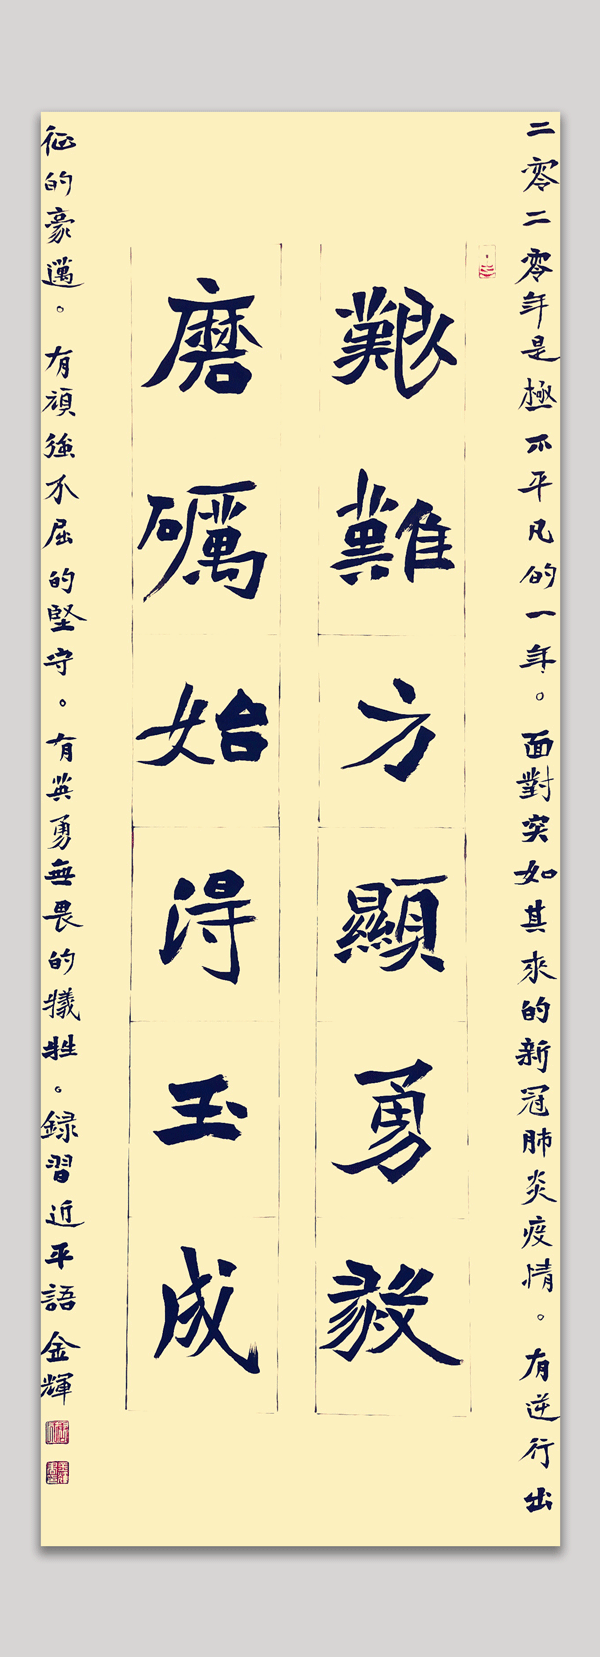 二零二零年是極不平凡的一年。面對突如其來的新冠肺炎疫情。有逆行出
艱難方顯勇毅
磨礪始得玉成
征的豪邁。有頑強不屈的堅守。有英勇無畏的犧牲。録習近平語 金輝